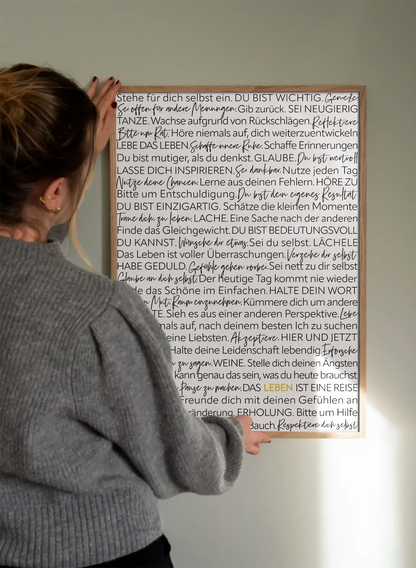 Stehe für dich selbst ein. DU BIST WICHTIG. Genieße
Sei offen für andere Meinungen. Gib zurück. SEI NEUGIERIG
TANZE. Wachse aufgrund von Rückschlägen. Reflektiere
Bitte um Rat. Höre niemals auf, dich weiterzuentwickeln
LEBE DAS LEBEN. Schaffe innere Ruhe. Schaffe Erinnerungen
Du bist mutiger, als du denkst. GLAUBE. Du bist wertvoll
LASSE DICH INSPIRIEREN. Sei dankbar. Nutze jeden Tag
Nutze deine Chancen. Lerne aus deinen Fehlern. HÖRE ZU
Bitte um Entschuldigung. Du bist dein eigenes Resultat
DU BIST EINZIGARTIG. Schätze die kleinen Momente
Traue dich zu leben. LACHE. Eine Sache nach der anderen
Finde das Gleichgewicht. DU BIST BEDEUTUNGSVOLL
DU KANNST. Wünsche dir etwas. Sei du selbst. LÄCHELE
Das Leben ist voller Überraschungen. Verzeihe dir selbst
HABE GEDULD. Gefühle gehen vorbei. Sei nett zu dir selbst
Glaube an dich selbst. Der heutige Tag kommt nie wieder
das Schöne im Einfachen. HALTE DEIN WORT
Mut Raum einzunehmen. Kümmere dich um andere
TE. Sieh es aus einer anderen Perspektive. Lebe
mals auf, nach deinem besten Ich zu suchen
eine Liebsten. Akzeptiere. HIER UND JETZT
Halte deine Leidenschaft lebendig. Erforsche
zu sagen. WEINE. Stelle dich deinen Ängsten
kann genau das sein, was du heute brauchst
Pause zu machen. DAS LEBEN IST EINE REISE
Freunde dich mit deinen Gefühlen an
ränderung. ERHOLUNG. Bitte um Hilfe
Bauch. Respektiere dich selbst